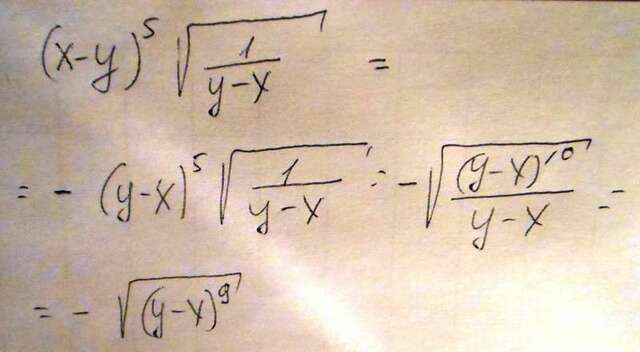 (x-y)^5 √(1/(y-x)) =
= -(y-x)^5 √(1/(y-x)) = -√((y-x)^10/(y-x)) =
= -√((y-x)^9)